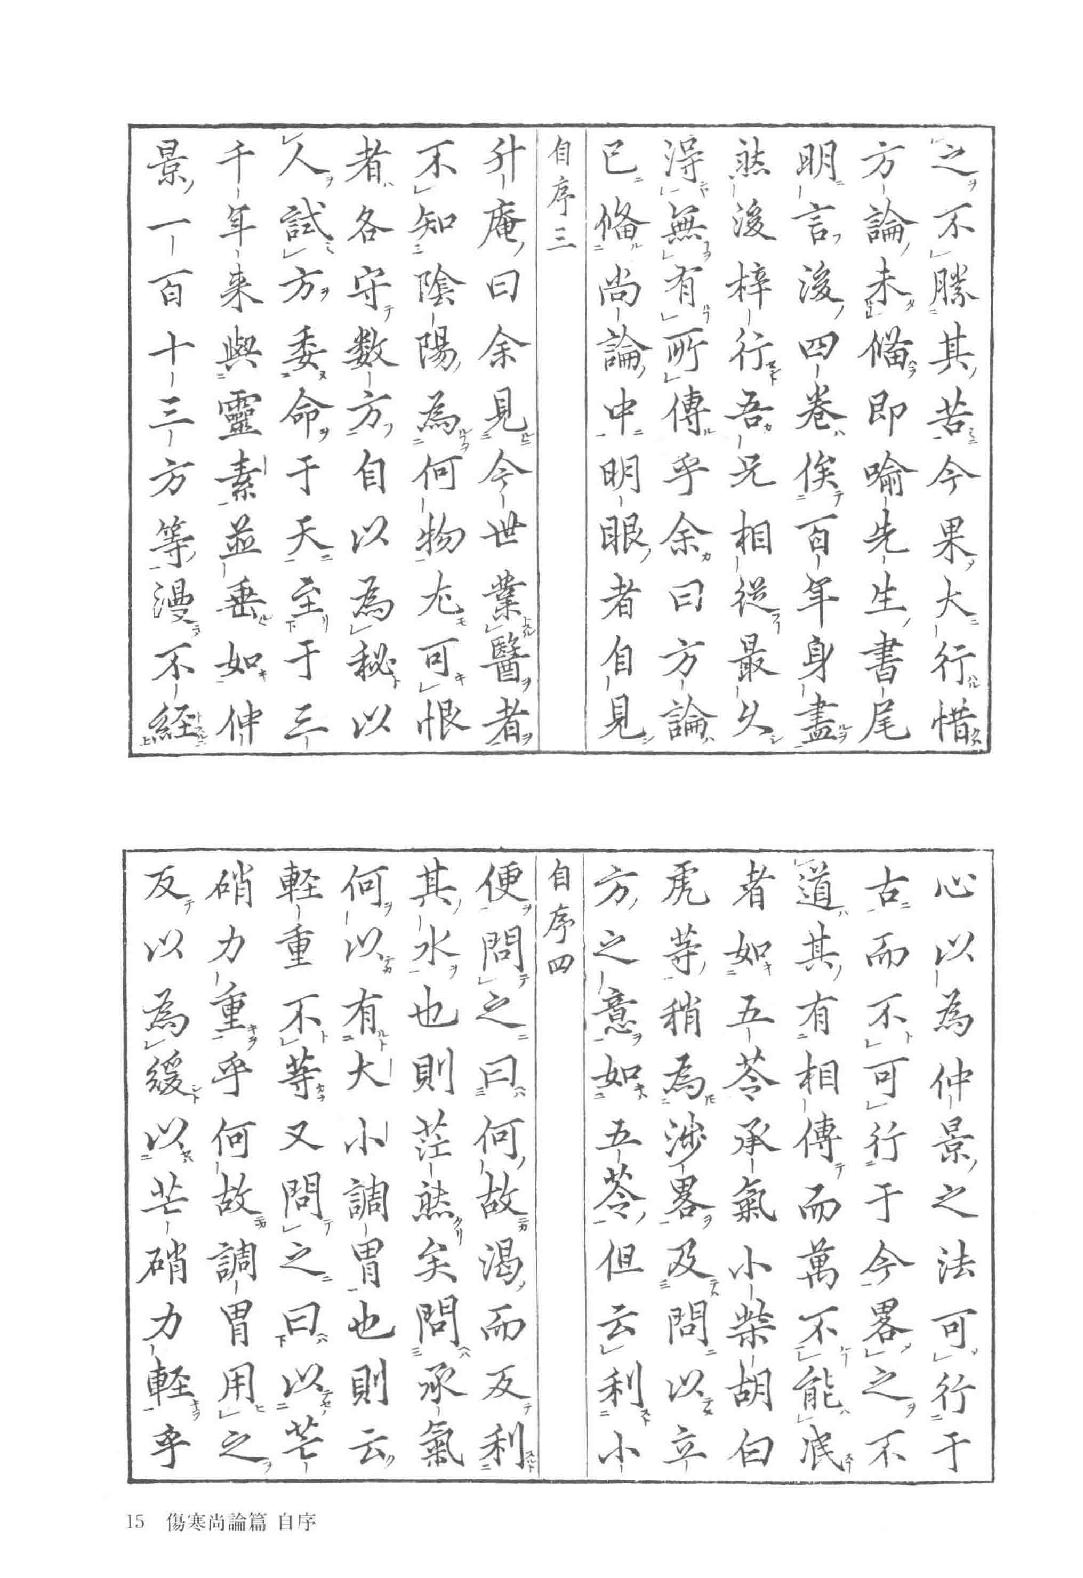 之不勝其苦今果大行惜
方論未備即喻先生書尾
明言後四卷俟百年身盡
然後梓行吾兄相從最久
得無有所傳乎余曰方論
已備尚論中明眼者自見
自序三
升庵曰余見今世業醫者
不知陰陽為何物尤可恨
者各守数方自以為秘以
人試方委命于天至于三
千年来與靈素並垂如仲
景一百十三方等漫不経
心以為仲景之法可行于
古而不可行于今畧之不
道其有相傳而萬不能泯
者如五苓承氣小柴胡白
虎等稍為渉畧及問以立
方之意如五苓但云利小
自序四
便問之曰何故渇而反利
其水也則茫然矣問承氣
何以有大小調胃也則云
軽重不等又問之曰以芒
硝力重乎何故調胃用之
反以為緩以芒硝力軽乎
15 傷寒尚論篇 自序